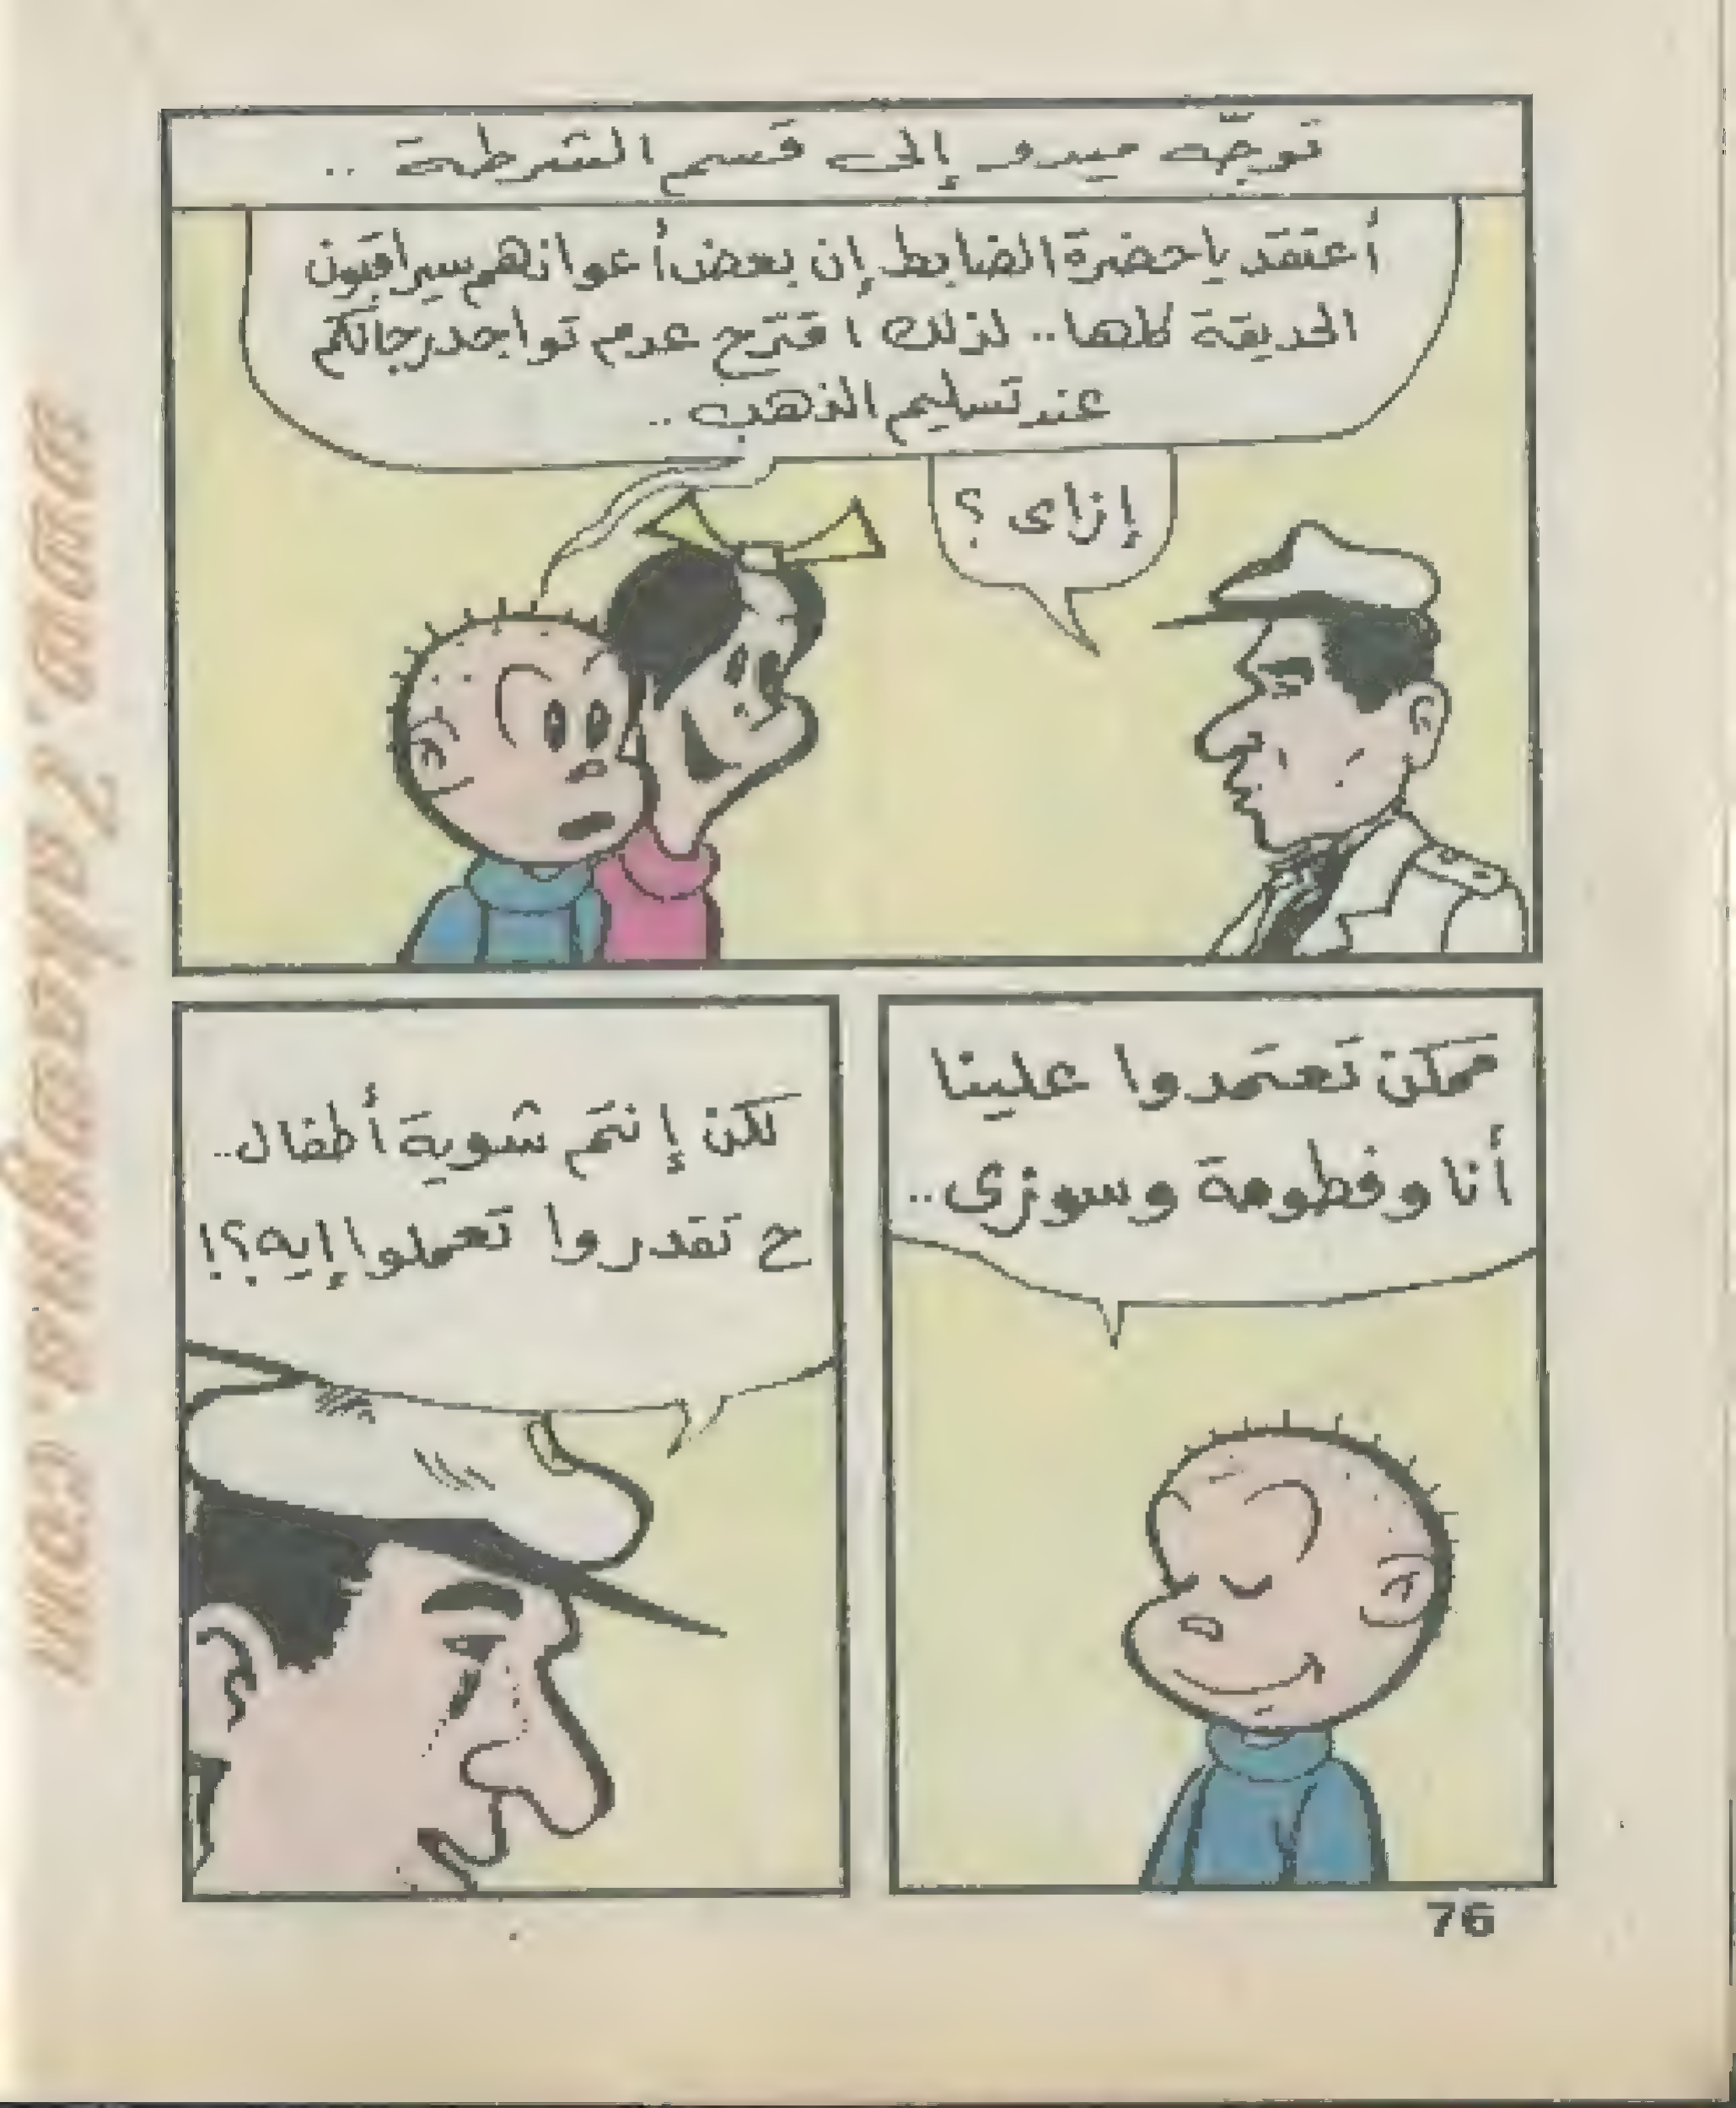 توجّه ميدو إلى قسم الشرطة ..
أعتقد يا حضرة الضابط إن بعض أعوانهم سيراقبون
الحديقة كلها.. لذلك اقترح عدم تواجد رجالكم
عند تسليم الذهب ..
إزاى ؟
ممكن تعتمدوا علينا
أنا وفطومة وسوزى ..
لكن إنتم شوية أطفال ..
ح تقدروا تعملوا إيه؟!
76